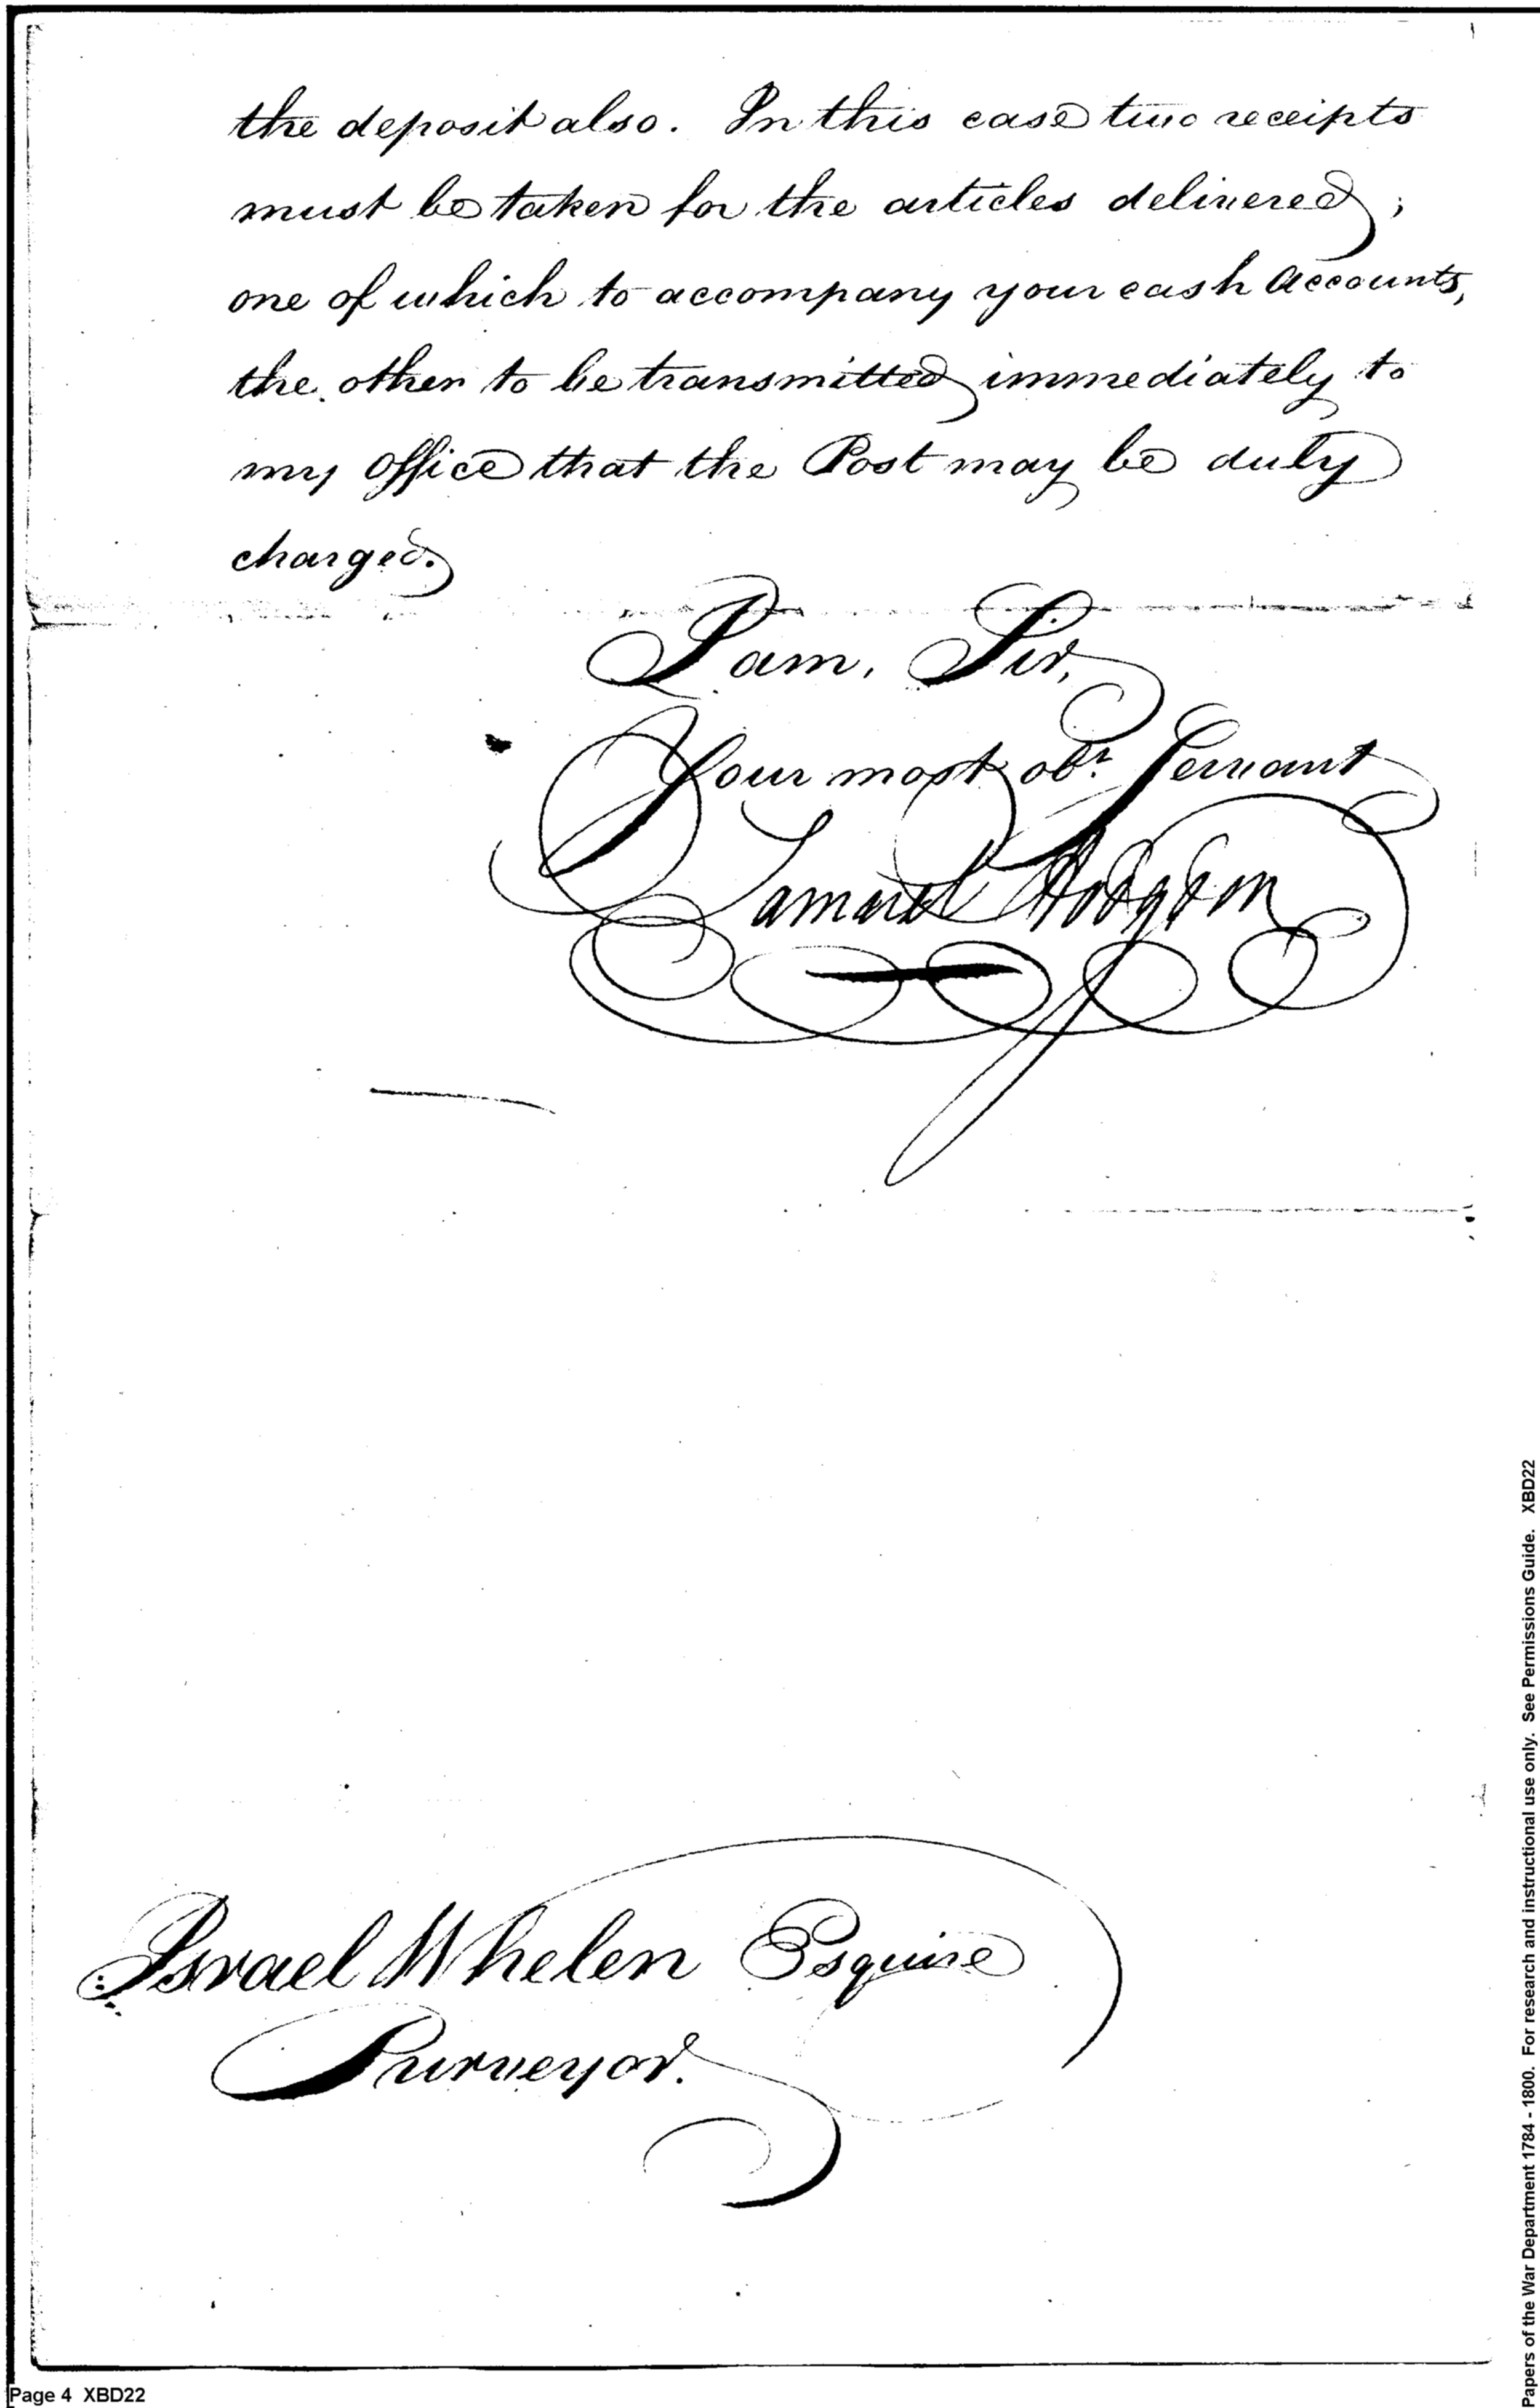 the deposit also. In this case two receipts
must be taken for the articles delivered;
one of which to accompany your cash Accounts,
the other to be transmitted immediately to
my Office that the Post may be duly
charged.
I am, Sir,
Your most obr. Servant
Samuel Hodgdon
Israel Whelen Esquire
Purveyor.
Page 4 XBD22
Papers of the War Department 1784 - 1800. For research and instructional use only. See Permissions Guide. XBD22